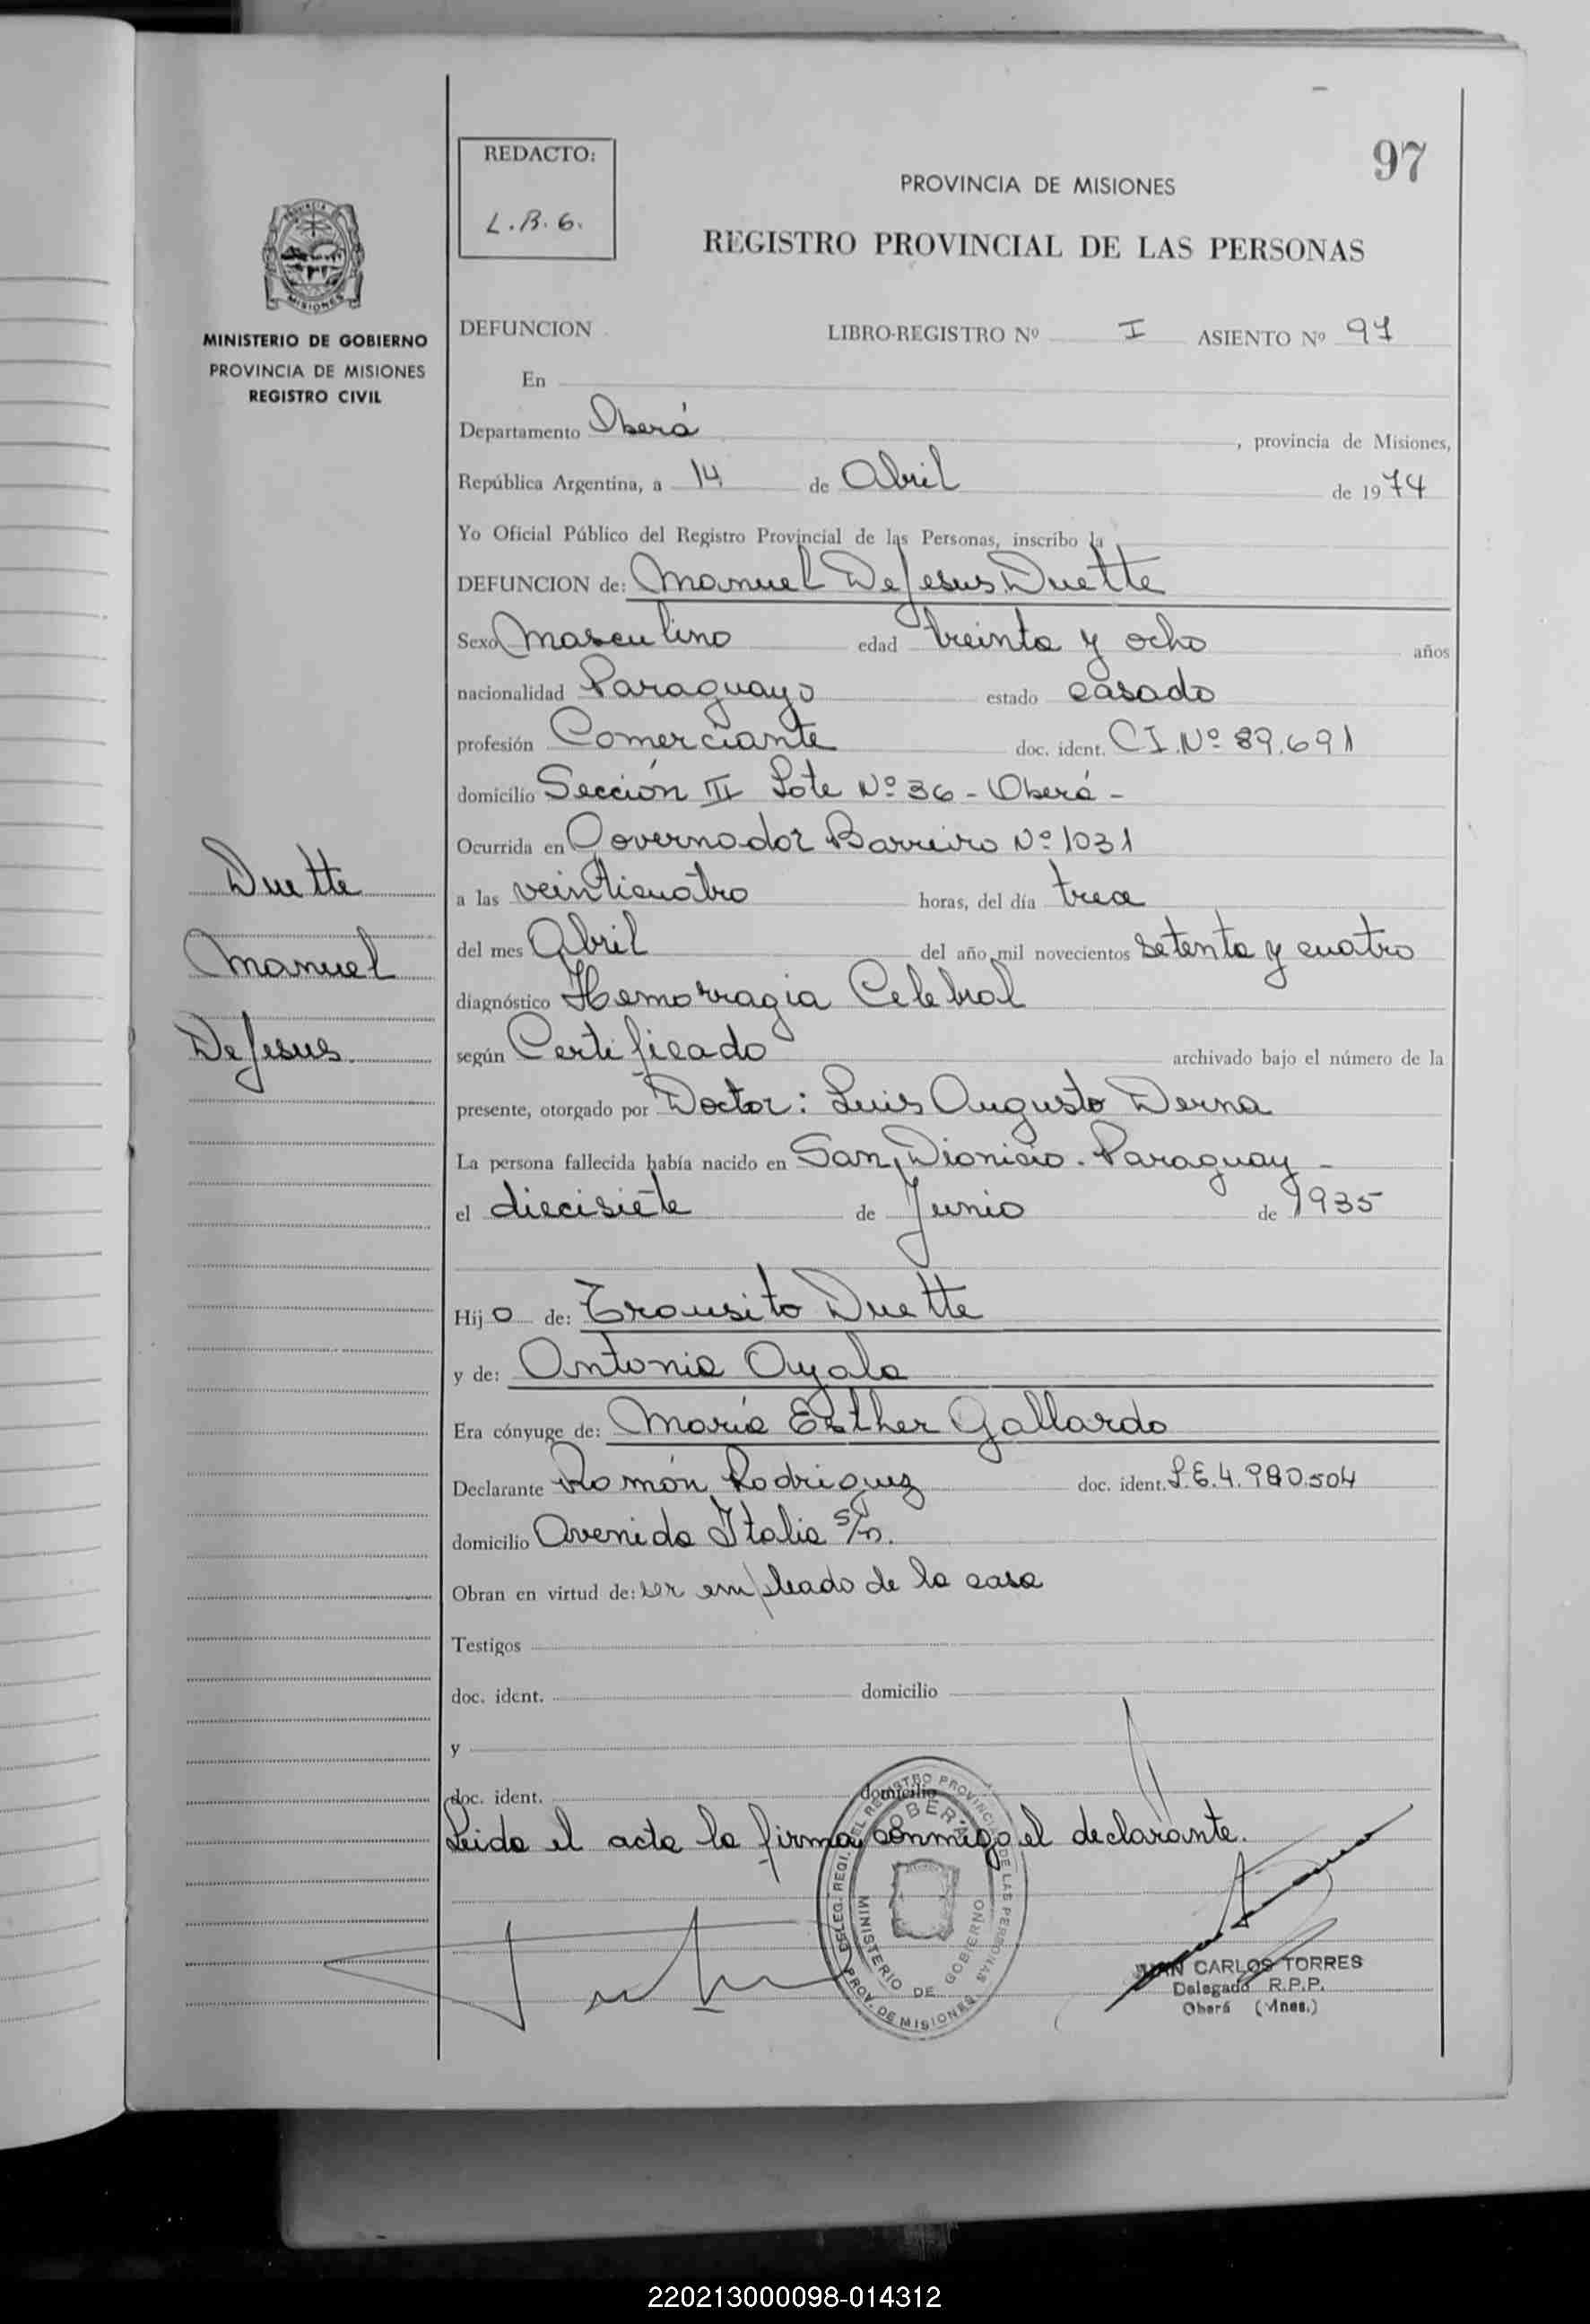 REDACTO:
L.B.G.
97
PROVINCIA DE MISIONES
REGISTRO PROVINCIAL DE LAS PERSONAS
MISIONES
MINISTERIO DE GOBIERNO
PROVINCIA DE MISIONES
REGISTRO CIVIL
DEFUNCION LIBRO-REGISTRO Nº I ASIENTO Nº 97
En
Departamento Oberá, provincia de Misiones,
República Argentina, a 14 de Abril de 1974
Yo Oficial Público del Registro Provincial de las Personas, inscribo la
DEFUNCION de: Manuel De Jesus Duette
Sexo Masculino edad treinta y ocho años
nacionalidad Paraguayo estado casado
profesión Comerciante doc. ident. CI.Nº 89.691
domicilio Sección III Lote Nº 36 - Oberá -
Ocurrida en Governador Barreiro Nº 1031
a las veinticuatro horas, del día trece
del mes Abril del año mil novecientos setenta y cuatro
diagnóstico Hemorragia Celebral
según Certificado archivado bajo el número de la
presente, otorgado por Doctor: Luis Augusto Derna
La persona fallecida había nacido en San Dionicio. Paraguay -
el diecisiete de Junio de 1935
Hijo de: Transito Duette
y de: Antonia Ayala
Era cónyuge de: María Esther Gallardo
Declarante Román Rodriguez doc. ident. L.E.4.980.504
domicilio Avenida Italia s/n.
Obran en virtud de: ser empleado de la casa
Testigos
doc. ident. domicilio
y
doc. ident. domicilio
Leida el acta la firma conmigo el declarante.
Duette
Manuel
De Jesus.
DELEG. REGI. DEL REGISTRO PROVINCIAL DE LAS PERSONAS
OBERÁ
MINISTERIO DE GOBIERNO
PROV. DE MISIONES
JUAN CARLOS TORRES
Delegado R.P.P.
Oberá (Mnes.)
220213000098-014312